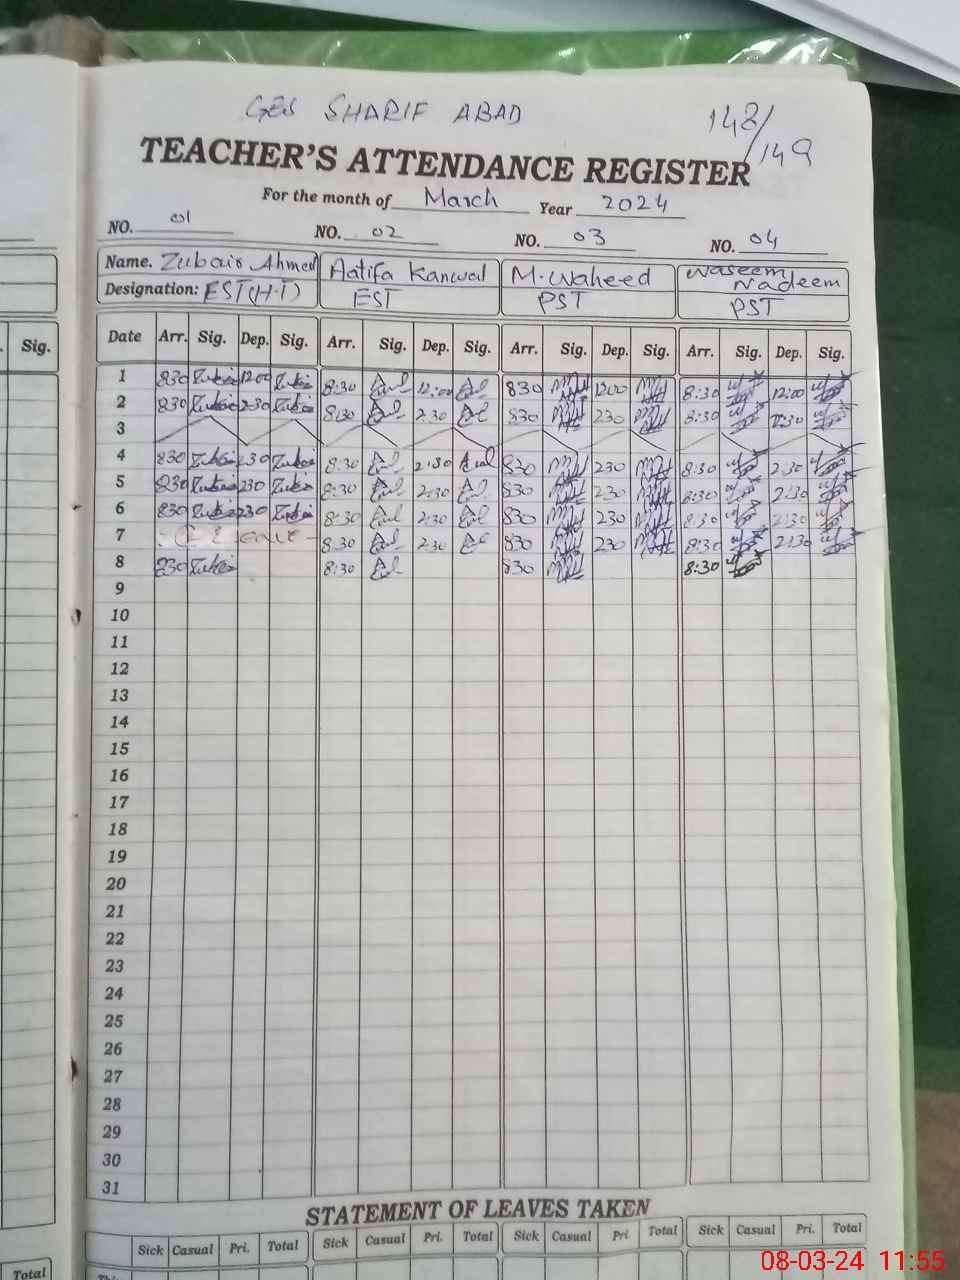 GES SHARIF ABAD
148/149
TEACHER'S ATTENDANCE REGISTER
For the month of March Year 2024
NO. 01 NO. 02 NO. 03 NO. 04
Name. Zubair Ahmed Aatifa Kanwal M. Waheed Waseem Nadeem
Designation: EST (H.T) EST PST PST
. Sig. Date Arr. Sig. Dep. Sig. Arr. Sig. Dep. Sig. Arr. Sig. Dep. Sig. Arr. Sig. Dep. Sig.
1 830 Zubai 1200 Zubai 8:30 12:00 830 1200 8:30 12:00
2 830 Zubai 230 Zubai 8:30 2:30 830 230 8:30
3
4 830 Zubai 230 Zubai 8:30 2:30 830 230 8:30 2:30
5 830 Zubai 230 Zubai 8:30 2:30 830 230 8:30 2:30
6 830 Zubai 230 Zubai 8:30 2:30 830 230 8:30 2:30
7 Leave 8:30 2:30 830 230 8:30 2:30
8 830 Zubai 8:30 830 8:30
9
10
11
12
13
14
15
16
17
18
19
20
21
22
23
24
25
26
27
28
29
30
31
STATEMENT OF LEAVES TAKEN
Total Sick Casual Pri. Total Sick Casual Pri. Total Sick Casual Pri. Total Sick Casual Pri. Total
08-03-24 11:55